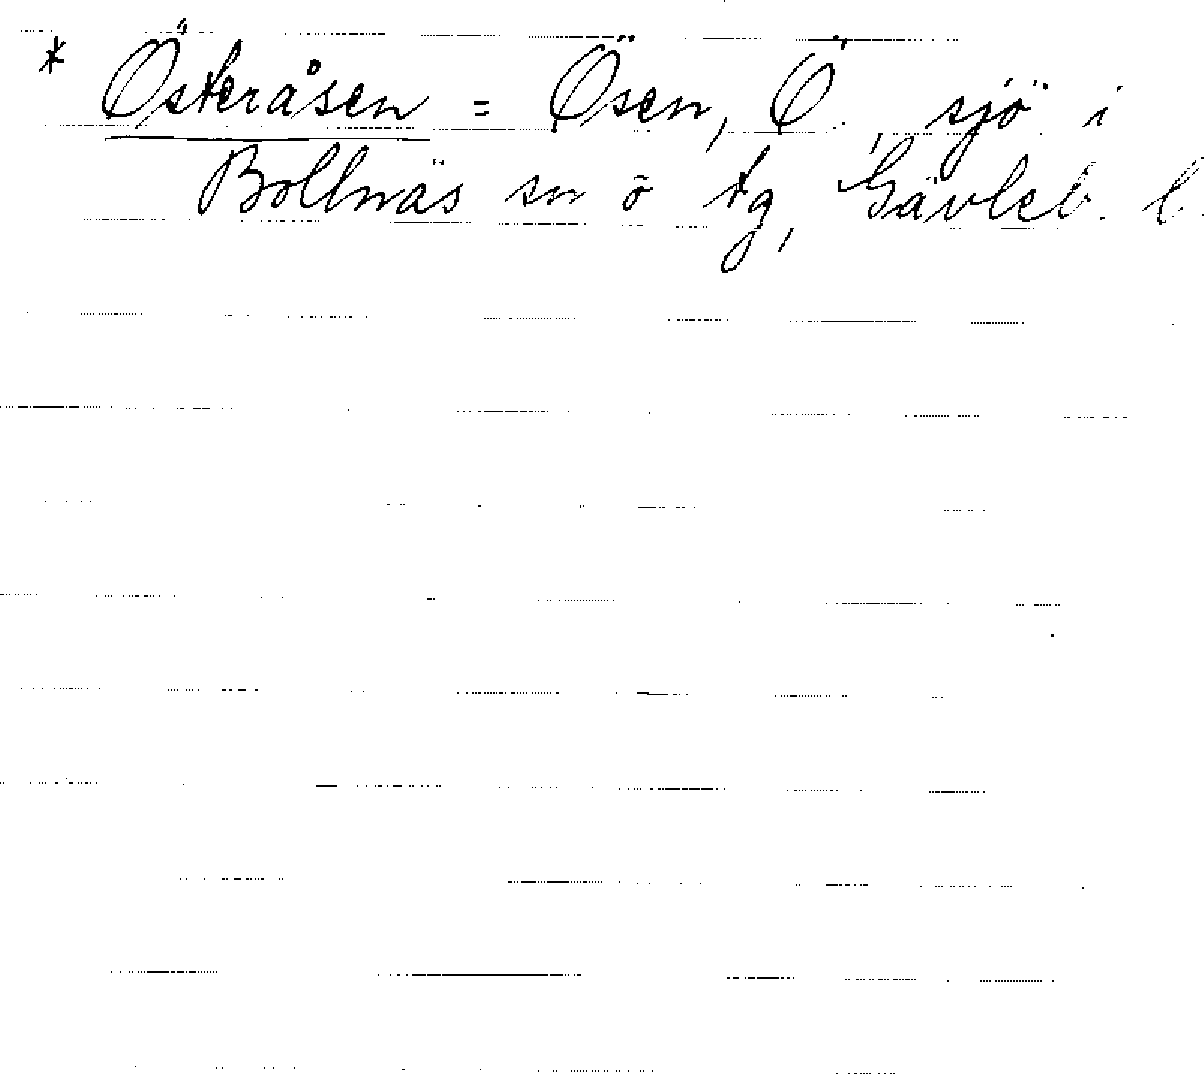 * Österåsen = Ösen, Ö., sjö i
Bollnäs sn o tg, Gävleb. l.